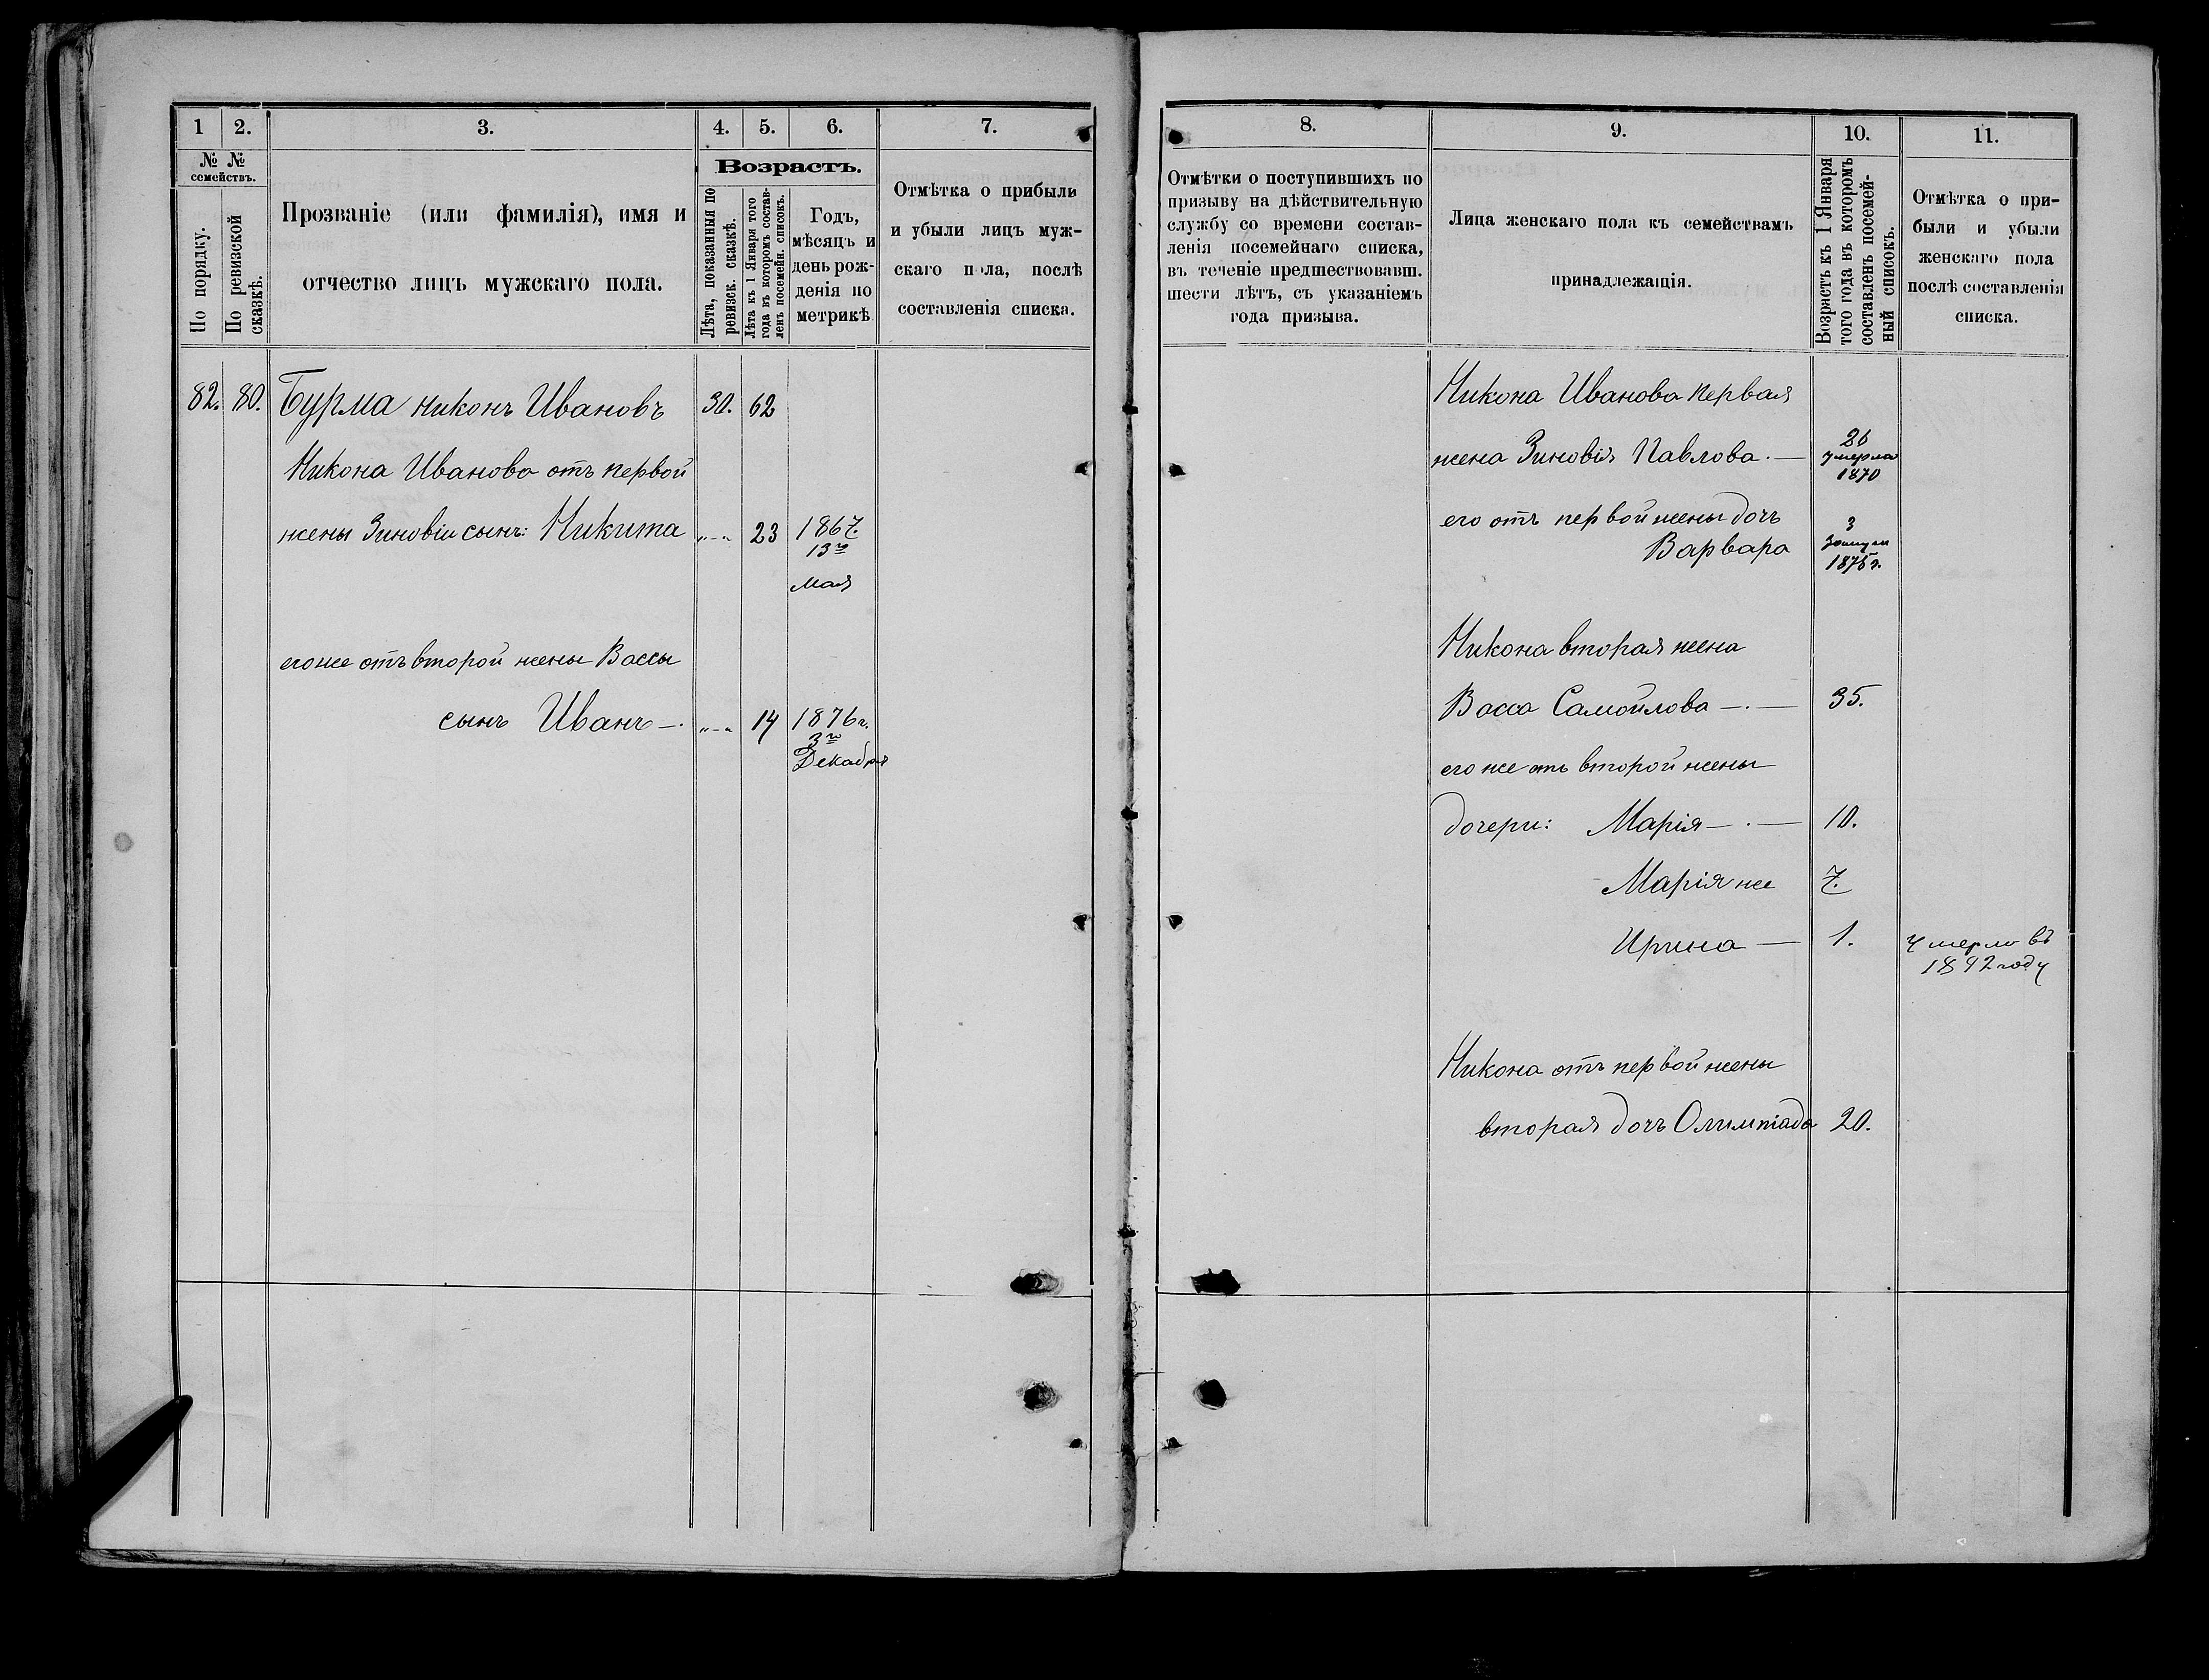 1 2. 3. 4. 5. 6. 7.
№ № семействъ.
По порядку.
По ревизской сказкѣ.
Прозваніе (или фамилія), имя и
отчество лицъ мужскаго пола.
Возрастъ.
Лѣта, показанныя по
ревизск. сказкѣ.
Лѣта къ 1 Января того
года въ которомъ состав-
ленъ посемейн. списокъ.
Годъ,
мѣсяцъ и
день рож-
денія по
метрикѣ
Отмѣтка о прибыли
и убыли лицъ муж-
скаго пола, послѣ
составленія списка.
82. 80. Бурма Никонъ Ивановъ 30. 62
Никона Иванова отъ первой
жены Зиновіи сынъ: Никита "-" 23 1867.
13го
Мая
егоже отъ второй жены Вассы
сынъ Иванъ —. "-" 14 1876 г.
3го
Декабря
8. 9. 10. 11.
Отмѣтки о поступившихъ по
призыву на дѣйствительную
службу со времени состав-
ленія посемейнаго списка,
въ теченіе предшествовавш.
шести лѣтъ, съ указаніемъ
года призыва.
Лица женскаго пола къ семействамъ
принадлежащія.
Возрастъ къ 1 Января
того года въ которомъ
составленъ посемей-
ный списокъ.
Отмѣтка о при-
были и убыли
женскаго пола
послѣ составленія
списка.
Никона Иванова первая
жена Зиновія Павлова. — 26
умерла
1870
его отъ первой жены дочь
Варвара 3
замуж
1875 г.
Никона вторая жена
Васса Самойлова —.— 35.
его же отъ второй жены
дочери: Марія —.— 10.
Марія же 7.
Ирина — 1. умерла въ
1892 году
Никона отъ первой жены
вторая дочь Олимпіада 20.